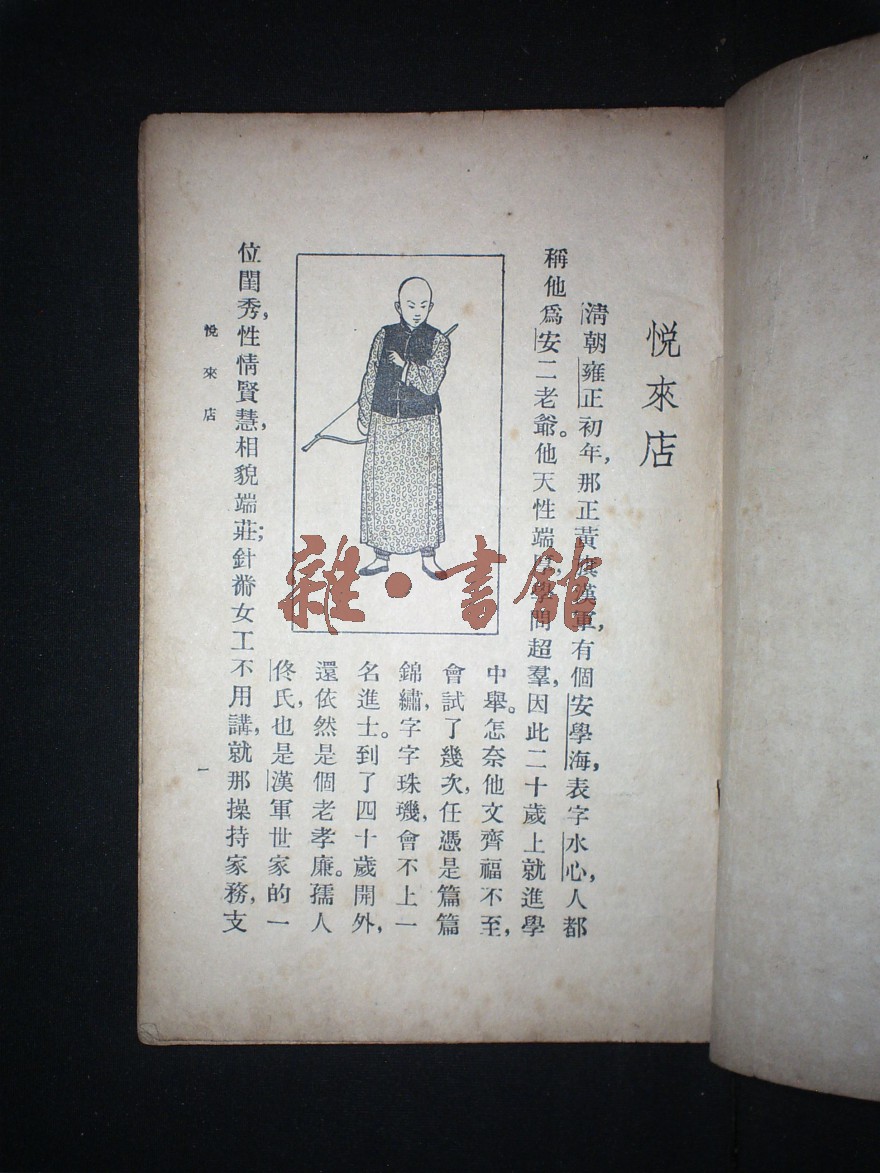 悅來店
清朝雍正初年，那正黃旗漢軍，有個安學海，表字水心，人都
稱他爲安二老爺。他天性端，學問超羣，因此二十歲上就進學
中舉。怎奈他文齊福不至，
會試了幾次，任憑是篇篇
錦繡，字字珠璣，會不上一
名進士。到了四十歲開外，
還依然是個老孝廉。孺人
佟氏，也是漢軍世家的一
位閨秀，性情賢慧，相貌端莊；針黹女工不用講，就那操持家務，支
悅來店
一
雜·書館